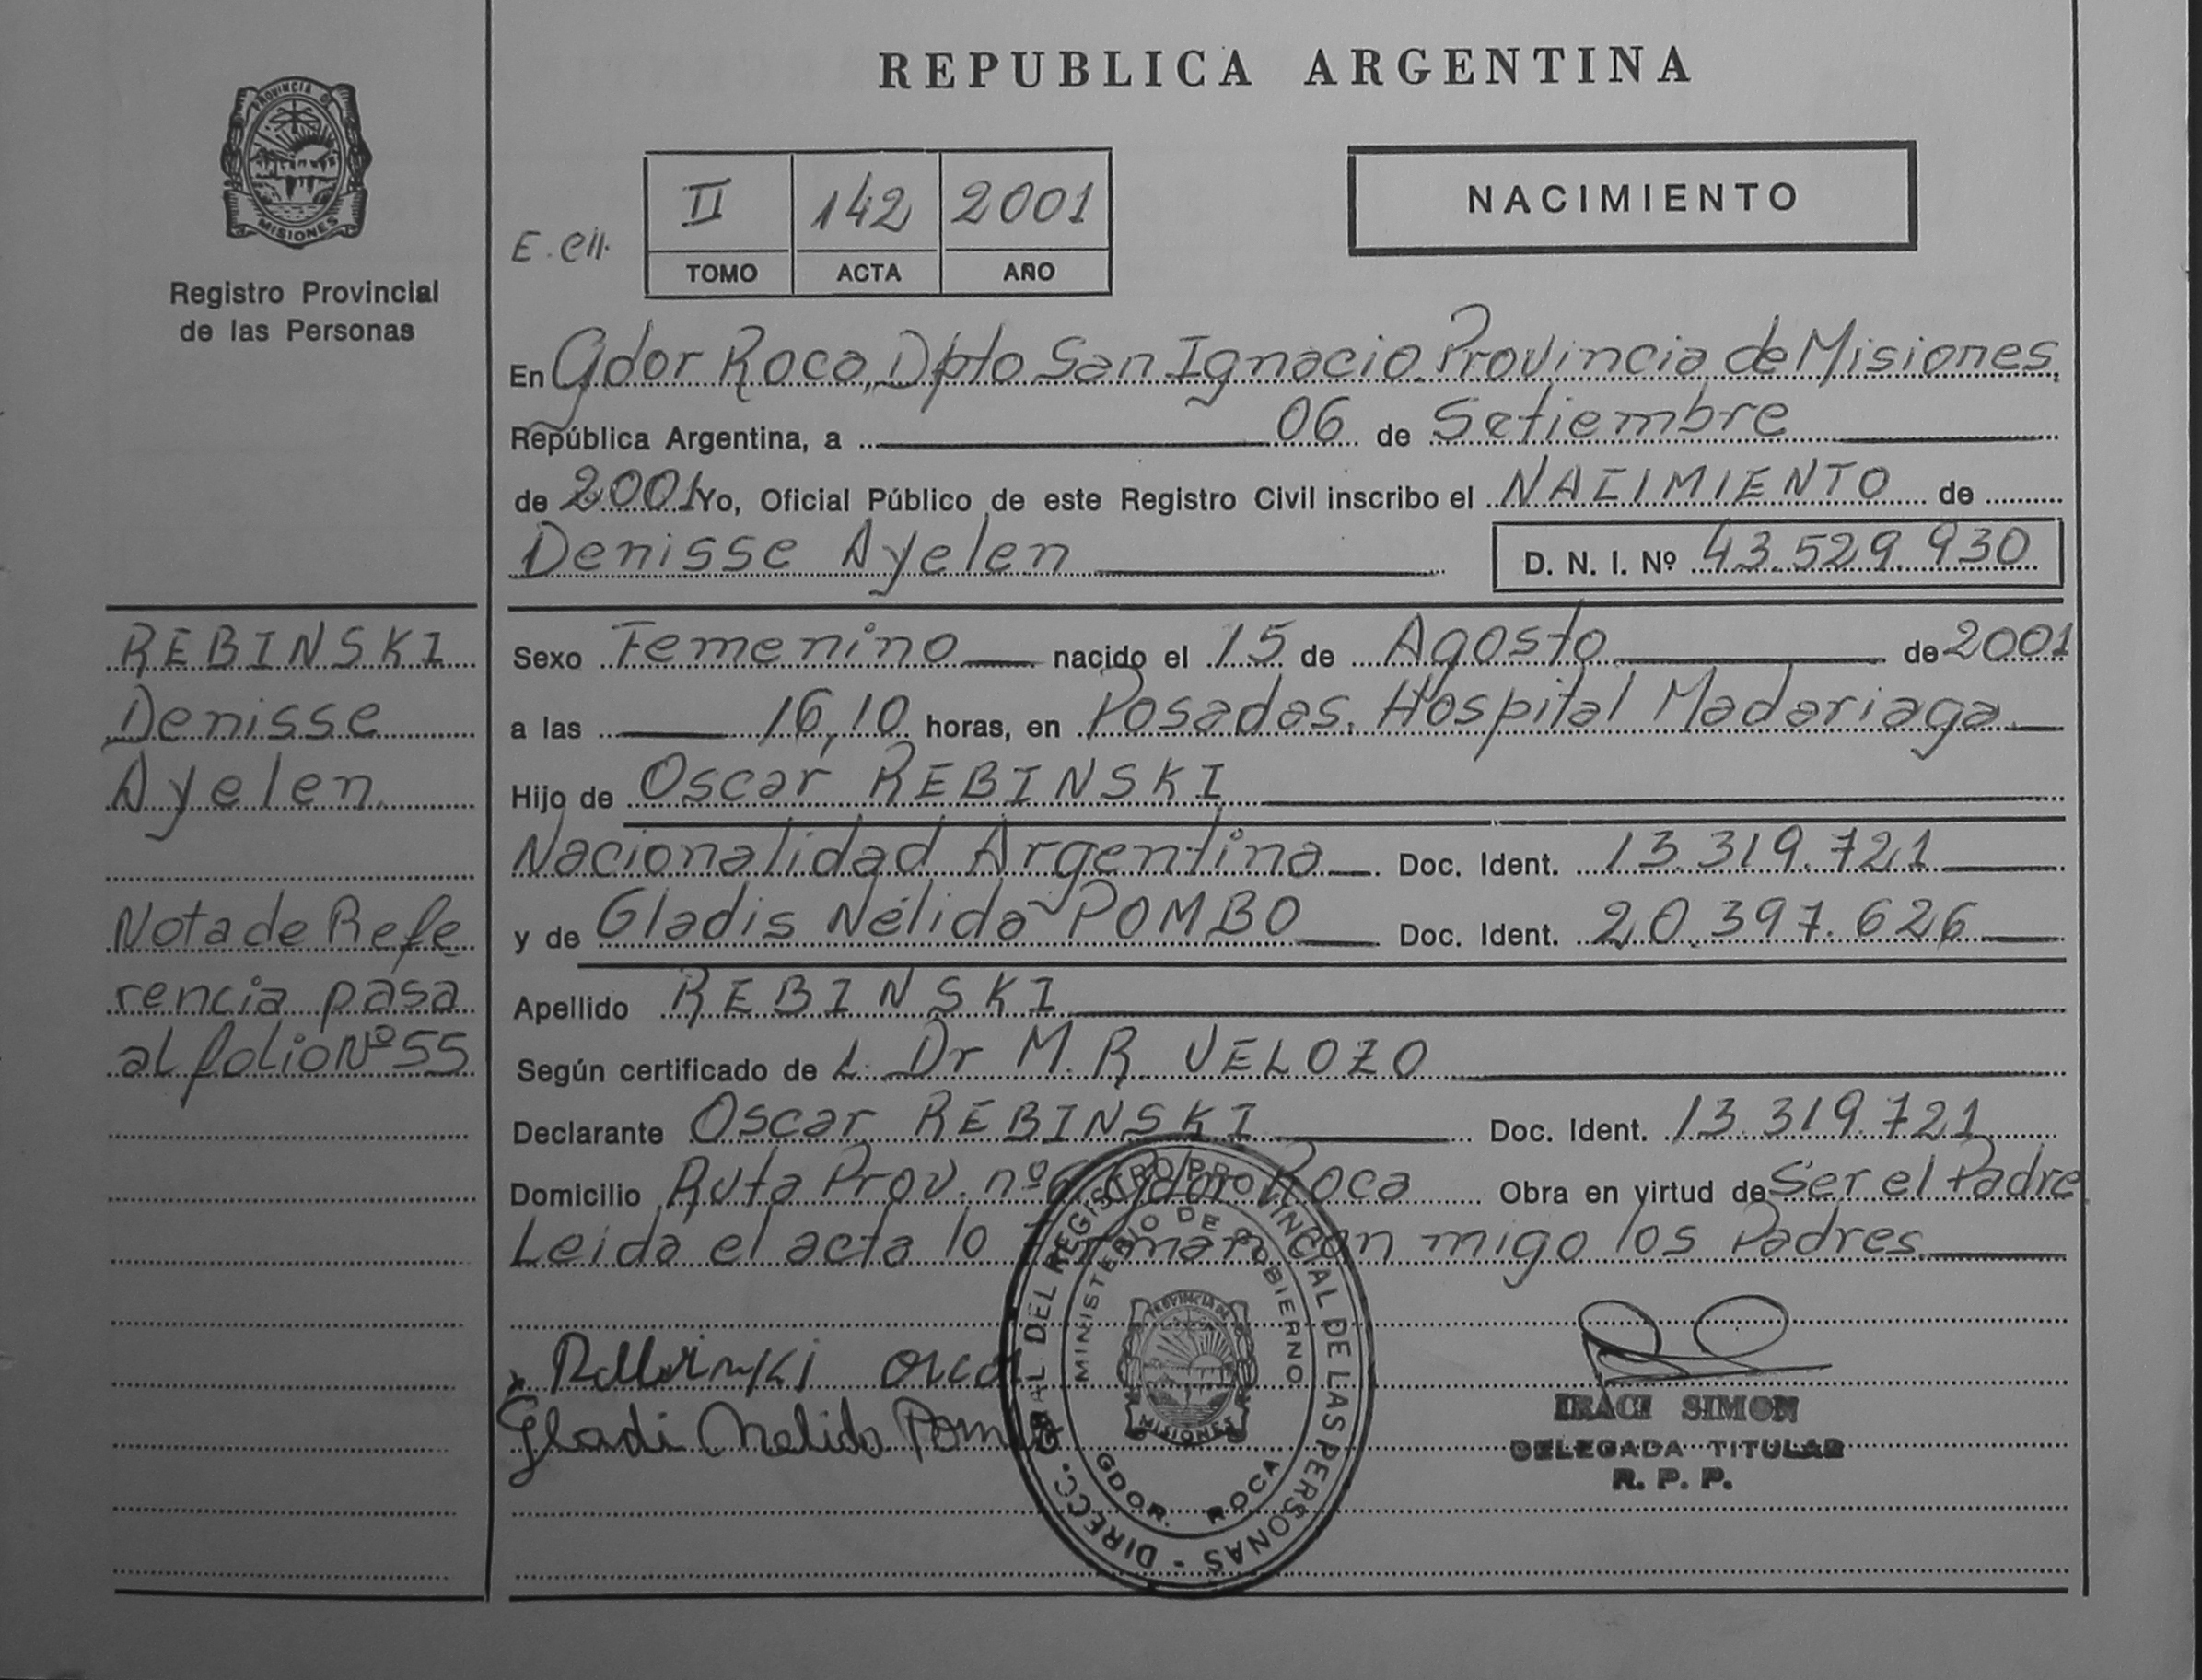 REPUBLICA ARGENTINA
PROVINCIA DE
MISIONES
Registro Provincial
de las Personas
II 142 2001
TOMO ACTA AÑO
NACIMIENTO
En Gdor Roca, Dpto San Ignacio. Provincia de Misiones,
República Argentina, a 06 de Setiembre
de 2001 Yo, Oficial Público de este Registro Civil inscribo el NACIMIENTO de
Denisse Ayelen D. N. I. Nº 43.529.930
Sexo Femenino nacido el 15 de Agosto de 2001
a las 16,10 horas, en Posadas. Hospital Madariaga
Hijo de Oscar REBINSKI
Nacionalidad Argentina Doc. Ident. 13.319.721
y de Gladis Nélida POMBO Doc. Ident. 20.397.626
Apellido REBINSKI
Según certificado de L. Dr M. R. VELOZO
Declarante Oscar REBINSKI Doc. Ident. 13.319.721
Domicilio Ruta Prov. nº6 Gdor Roca Obra en virtud de Ser el Padre
Leida el acta lo firman con migo los Padres
REBINSKI
Denisse
Ayelen
Nota de Refe
rencia pasa
al folio Nº 55
Gladi Nelida Pombo
DIRECC. GRAL. DEL REGISTRO PROVINCIAL DE LAS PERSONAS -
MINISTERIO DE GOBIERNO
PROVINCIA DE
MISIONES
GDOR. ROCA
IRACI SIMON
DELEGADA TITULAR
R. P. P.